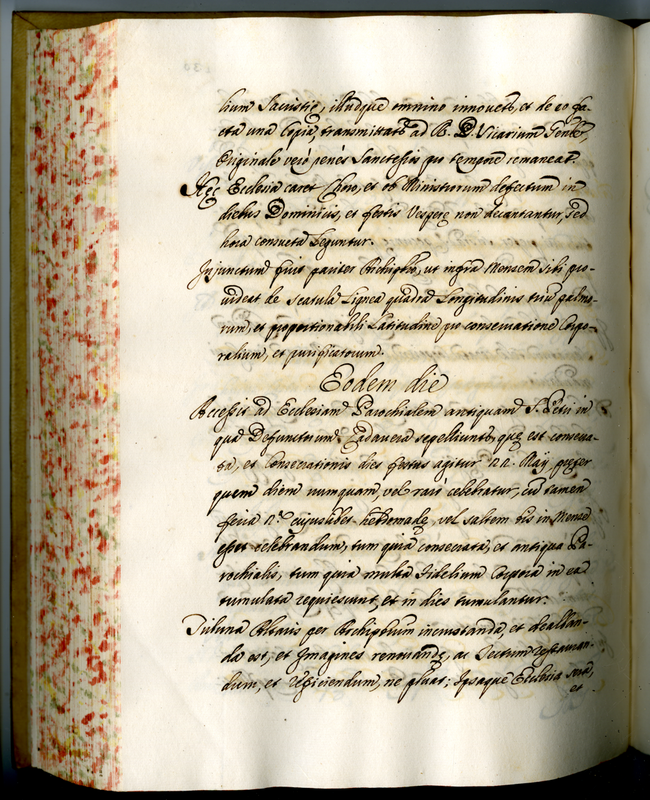 lium Sacristię, illudque omnino innovetr, et de eo fa-
cta una Copia, transmittatr ad R. D. Vicarium Genlem,
Originale verò penès Sanctessis pro tempore remaneat.
Hęc Ecclesia caret Choro, et ob Ministrorum defectum in
diebus Dominicis, et festis Vesperę non decantantur, sed
hora consueta leguntur.
Injunctum fuit pariter Archipbro, ut infra Mensem sibi pro-
videat de scatula lignea quadra Longitudinis trium palmo-
rum, et proportionabili Latitudine pro conservatione Corpo-
ralium, et purificatorum.
Eodem die
Accessit ad Ecclesiam Parochialem antiquam S. Petri in
qua Defunctorum Cadavera sepelliuntr, quę est consecra-
ta, et Consecrationis dies festus agitur 22. Maij, pręter
quem diem numquam, vel rarò celebratur, cum tamen
feria 2.a cujuslibet hebdomadę, vel saltem bis in Mense
esset celebrandum, tum quia consecrata, et antiqua Pa-
rochialis, tum quia multa fidelium Corpora in ea
tumulata requiescunt, et in dies tumulantur.
Tribuna Altaris per Archipbrum incrustanda, et dealban-
da est, et Imagines renovandę, ac Tectum restauran-
dum, et reficiendum, ne pluat; Ipsaque Ecclesia
et